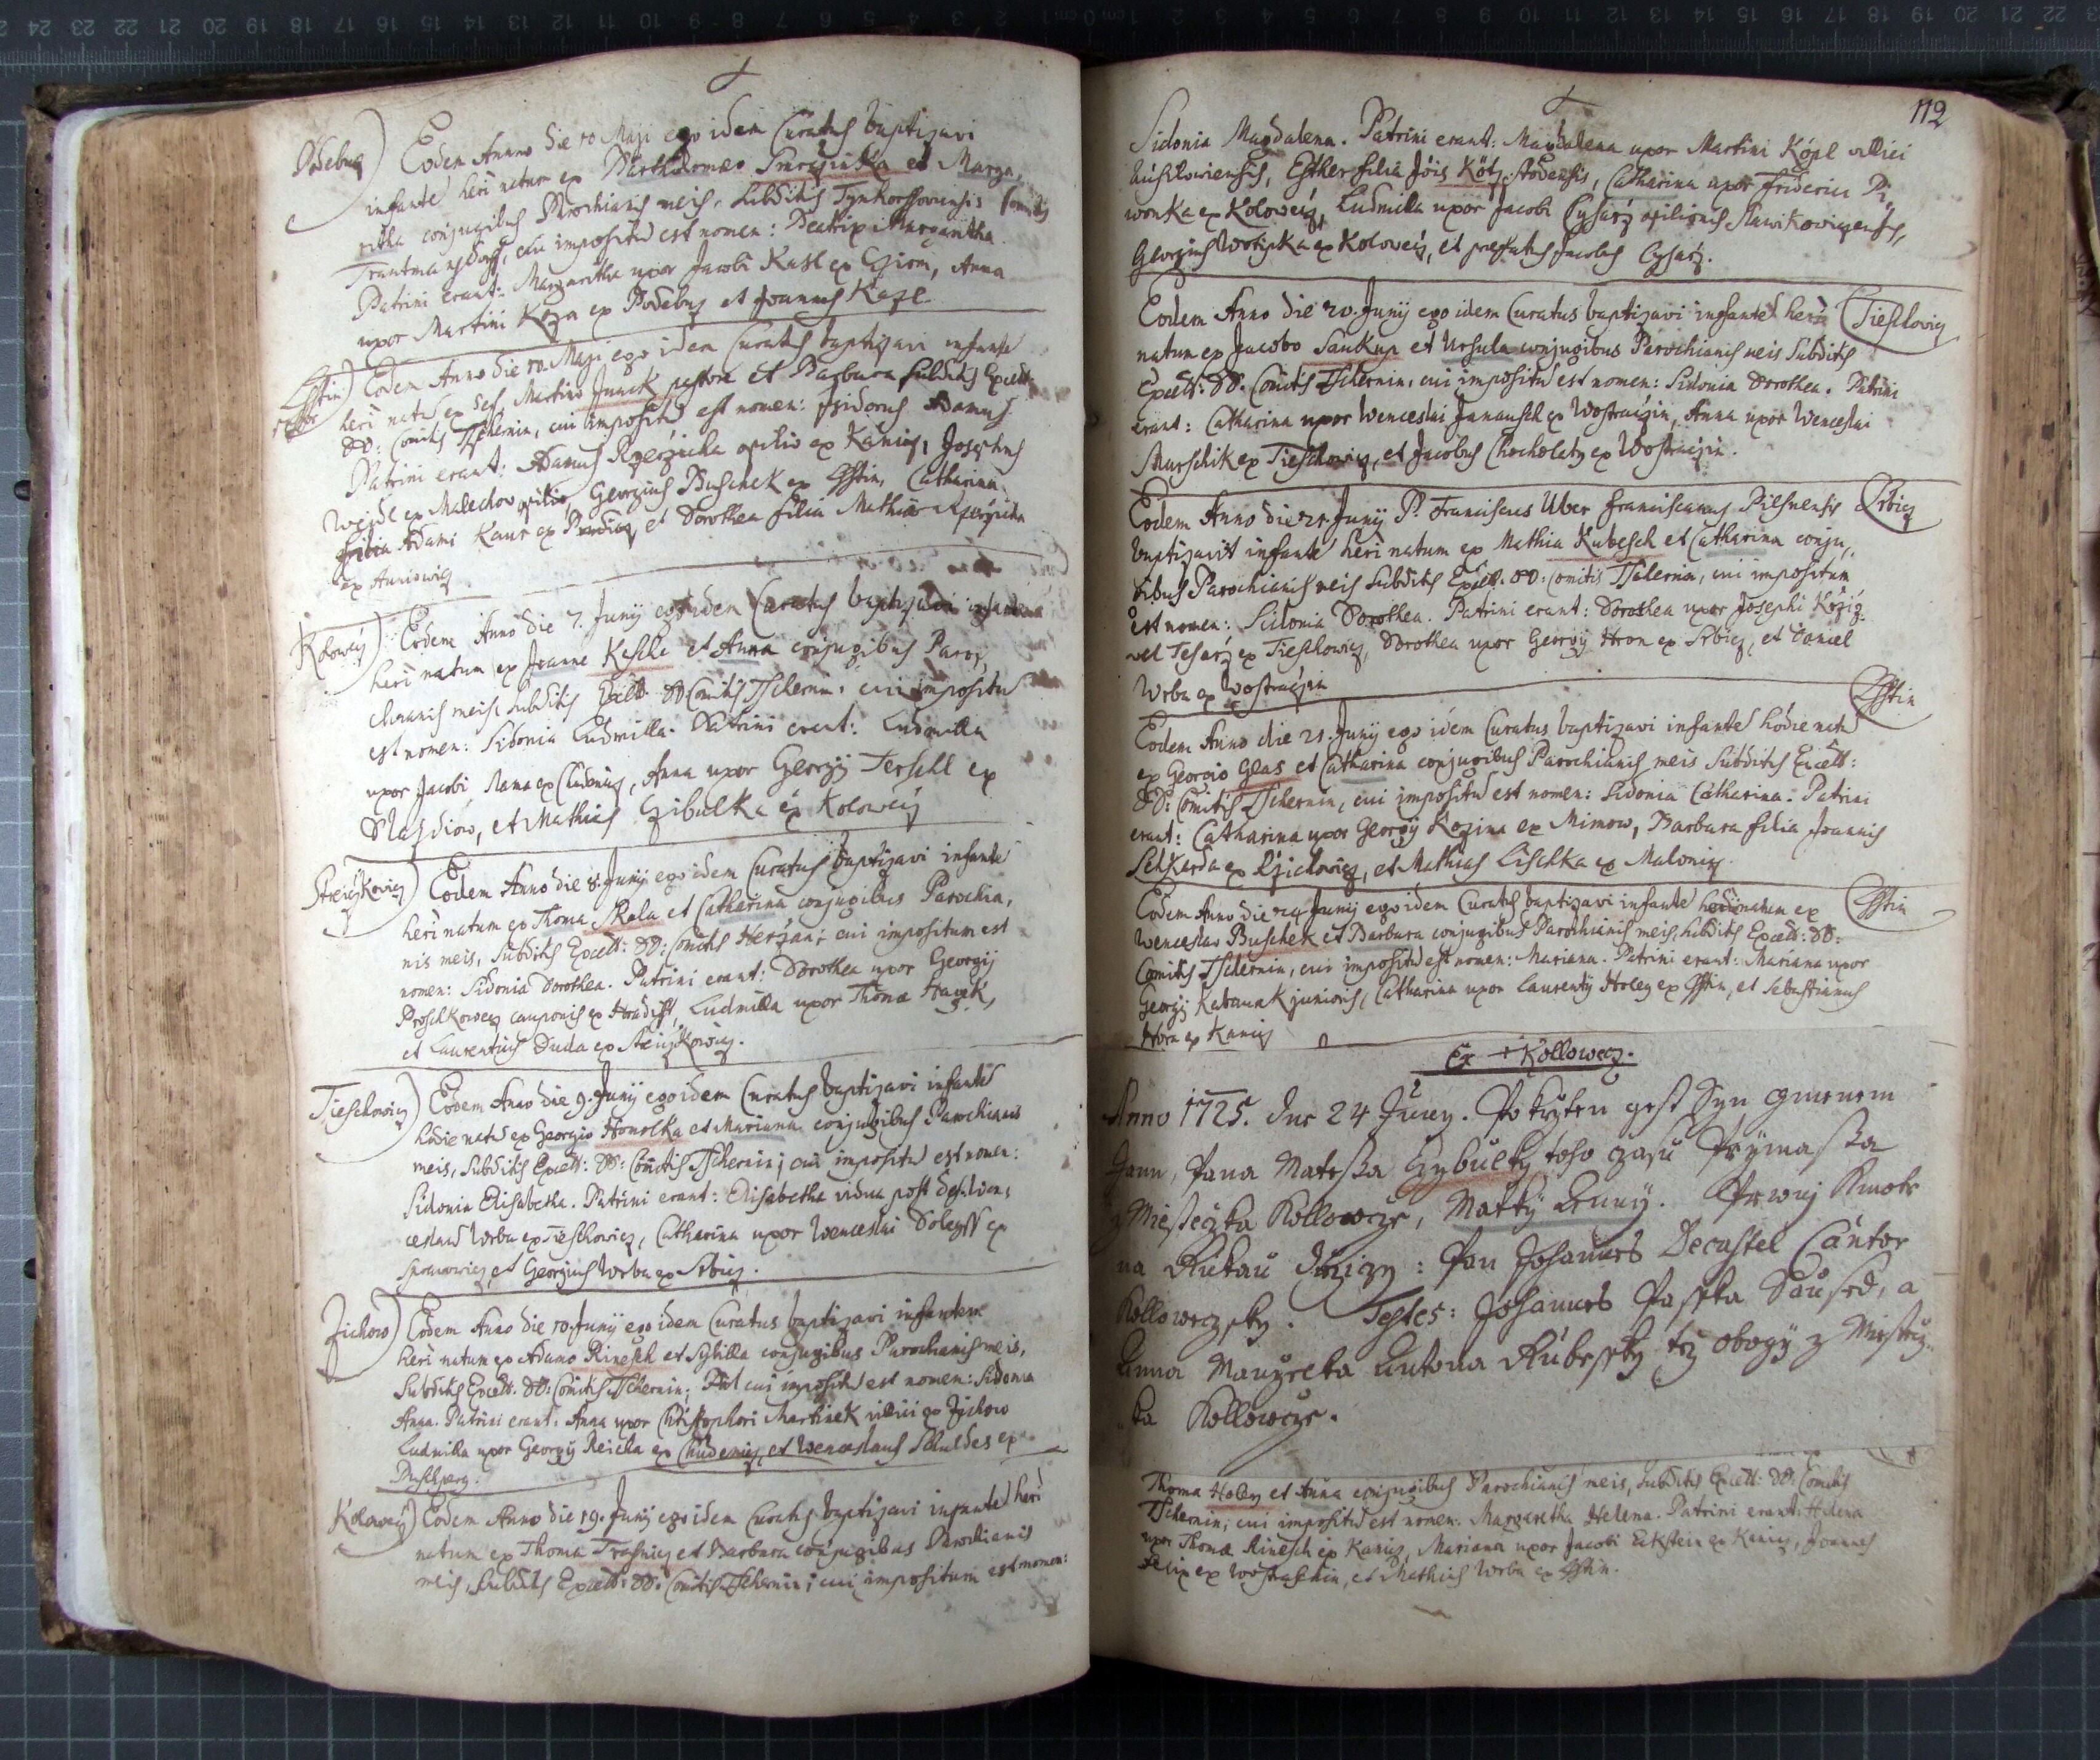 Eodem Anno die 10 Maji ego idem Curatus baptizavi
infante heri natum ex Bartholomæo et Marga,
ritha conjugibus Parochianis meis, subditis
cui impositu est nomen: Beatrix Margaritha.
Patrini erant: Margaritha uxor Jacobi Kasl ex Anna
uxor Martini Koza ex Podebus et Joannes Kozl
Eodem Anno die 10. Maji ego idem Curatus baptizavi infante
heri natu ex Martino Junek pastore et Barbara subditis Excell:
DD: Comitis Tschernin, cui impositu est nomen: Isidorus Adamus
Patrini erant: Adamus opilio ex Kanicz, Josephus
Wejdl ex Malechow opilio, Georgius Buschek ex Catharina
filia Adami et Dorothea filia Mathiæ
ex
Kolowecz) Eodem Anno die 7. Junij ego idem Curatus baptizavi infantem
heri natum ex Joanne Keschl et Anna conjugibus Paro,
chianis meis, subditis Excell: DD Comitis Tschernin, cui impositu
est nomen: Sidonia Ludmilla. Patrini erant: Ludmilla
uxor Jacobi ex Chudenicz, Anna uxor Georgij Terschl ex
et Mathias Czibulka ex Kolowecz
Eodem Anno die 8. Junij ego idem Curatus baptizavi infante
heri natum ex Thoma Skala et Catharina conjugibus Parochia,
nis meis, subditis Excell: DD: Comitis Herzan; cui impositum est
nomen: Sidonia Dorothea. Patrini erant: Dorothea uxor Georgij
Proschkowecz cauponis ex Hradischt, Ludmilla uxor Thomæ Hayek,
et Laurentius Duda ex
Tieschowicz) Eodem Anno die 9. Junij ego idem Curatus baptizavi infante
hodie natu ex Georgio Homolka et Mariana conjugibus Parochianis
meis, subditis Excell: DD: Comitis Tschernin; cui impositu est nomen:
Sidonia Elisabetha. Patrini erant: Elisabetha vidua post def: Wen,
ceslaus Wrba ex Tieschowicz, Catharina uxor Wenceslai Doleyss ex
et Georgius Wrba ex Srbicz.
Zichow) Eodem Anno die 10. Junij ego idem Curatus baptizavi infantem
heri natum ex Adamo Rinesch et Sybilla conjugibus Parochianis meis,
subditis Excell: DD: Comitis Tschernin; cui impositu est nomen: Sidonia
Anna. Patrini erant: Anna uxor Christophori Martinek villici ex Zichow
Ludmilla uxor Georgij Reicha ex Chudenicz, et Wenceslaus Schuldes ex
Kolowecz) Eodem Anno die 19. Junij ego idem Curatus baptizavi infante heri
natum ex Thoma et Barbara conjugibus Parochianis
meis, subditis Excell: DD: Comitis Tschernin; cui impositum est nomen:
112
Sidonia Magdalena. Patrini erant: Magdalena uxor Martini Köpl villici
Esther filia Jois Catharina uxor Friderici Pi,
wonka ex Kolowecz, Ludmilla uxor Jacobi Cysarz opilionis
Georgius Wotipka ex Kolowecz, et præfatus Jacobus Cysarz.
Eodem Anno die 20. Junij ego idem Curatus baptizavi infante heri (Tieschowicz
natum ex Jacobo Saukup et Ursula conjugibus Parochianis meis subditis
Excell: DD. Comitis Tschernin, cui impositu est nomen: Sidonia Dorothea. Patrini
erant: Catharina uxor Wenceslai Janausch ex Wostraczin, Anna uxor Wenceslai
Murschik ex Tieschowicz, et Jacobus Chocholaty ex Wostraczin.
Eodem Anno die 21. Junij P. Franciscus Uber Franciscanus Pilsnensis (Srbicz
baptizavit infante heri natum ex Mathia Kubesch et Catharina conju,
gibus Parochianis meis subditis Excell. DD: Comitis Tschernin, cui impositum
est nomen: Sidonia Dorothea. Patrini erant: Dorothea uxor Josephi
vel Tesarz ex Tieschowicz, Dorothea uxor Georgij Hron ex Srbicz, et Daniel
Wrba ex Wostraczin
Eodem Anno die 21. Junij ego idem Curatus baptizavi infante hodie natu
ex Georgio Glas et Catharina conjugibus Parochianis meis subditis Excell:
DD: Comitis Tschernin, cui impositu est nomen: Sidonia Catharina. Patrini
erant: Catharina uxor Georgij Kozina ex Mimow, Barbara filia Joannis
et Mathias Lischka ex Malonicz.
Eodem Anno die 24 Junij ego idem Curatus baptizavi infante natum ex
Wenceslao Buschek et Barbara conjugibus Parochianis meis, subditis Excell: DD:
Comitis Tschernin, cui impositu est nomen: Mariana. Patrini erant: Mariana uxor
Georgij Kabauak junioris, Catharina uxor Laurentij Holey ex et Sebastianus
Hora ex Kanicz
Ex + Kollowecz.
Anno 1725. Dne 24 Juny. Pokrzten gest Syn gmenem
Jann, Pana Mateßa Czybulky toho czasu Prÿmaßa
z Miesteczka Kollowcze, Matky Anny. Prwnj Kmotr
na Rukau drziczy: Pan Johannes Decastel Cantor
Kollowczsky. Testes: Johannes Passka Saused, a
Anna Manzielka Antona tez obogÿ z Miestecz,
ka Kollowcze.
Thoma Holey et Anna conjugibus Parochianis meis, subditis Excell: DD: Comitis
Tschernin; cui impositu est nomen: Margaretha Helena. Patrini erant: Helena
uxor Thomæ Rinesch ex Kanicz, Mariana uxor Jacobi Eckstein ex Kanicz, Joannes
Felix ex Wostraschin, et Mathias Wrba ex